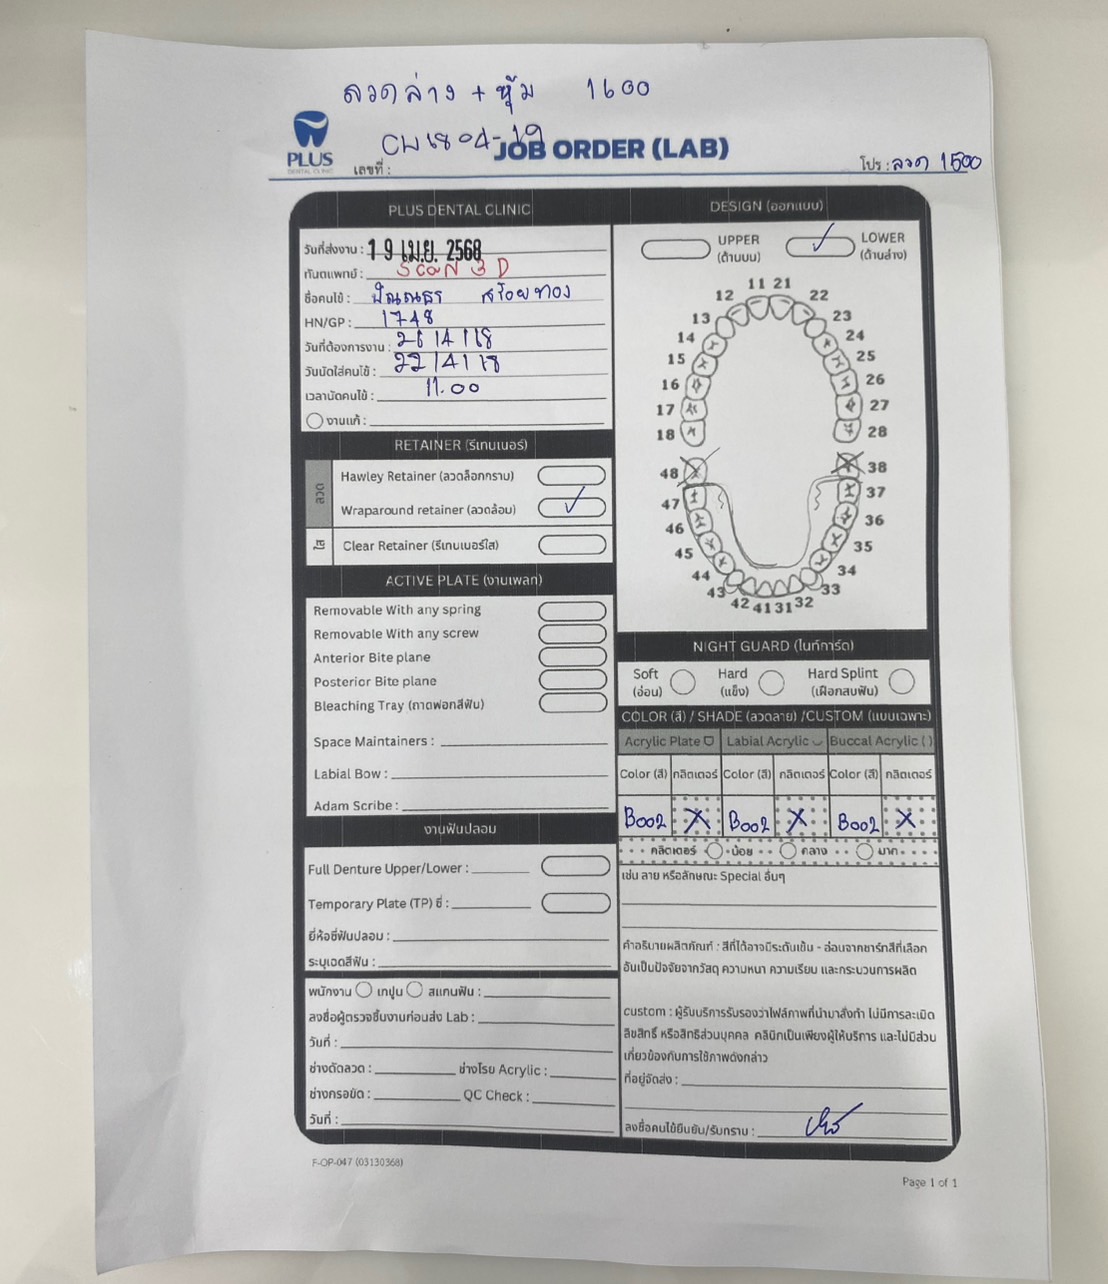 ลวดล่าง + หุ้ม 1600
PLUS
DENTAL CLINIC
JOB ORDER (LAB)
เลขที่ :
โปร : ลวด 1500
PLUS DENTAL CLINIC
วันที่ส่งงาน : 19 เม.ย. 2568
ทันตแพทย์ : Scan 3D
ชื่อคนไข้ : ปัณณธร สร้อยทอง
HN/GP : 1748
วันที่ต้องการงาน :
วันนัดใส่คนไข้ : 22/4/68
เวลานัดคนไข้ : 11.00
งานแก้ :
RETAINER (รีเทนเนอร์)
ลวด
Hawley Retainer (ลวดล็อกกราม)
Wraparound retainer (ลวดล้อม)
ใส
Clear Retainer (รีเทนเนอร์ใส)
ACTIVE PLATE (งานเพลท)
Removable With any spring
Removable With any screw
Anterior Bite plane
Posterior Bite plane
Bleaching Tray (ถาดฟอกสีฟัน)
Space Maintainers :
Labial Bow :
Adam Scribe :
งานฟันปลอม
Full Denture Upper/Lower :
Temporary Plate (TP) ซี่ :
ยี่ห้อซี่ฟันปลอม :
ระบุเฉดสีฟัน :
พนักงาน เทปูน สแกนฟัน :
ลงชื่อผู้ตรวจชิ้นงานก่อนส่ง Lab :
วันที่ :
ช่างดัดลวด : ช่างโรย Acrylic :
ช่างกรอขัด : QC Check :
วันที่ :
DESIGN (ออกแบบ)
UPPER (ด้านบน)
LOWER (ด้านล่าง)
11 21
12 22
13 23
14 24
15 25
16 26
17 27
18 28
48 38
47 37
46 36
45 35
44 34
43 33
42 41 31 32
NIGHT GUARD (ไนท์การ์ด)
Soft (อ่อน) Hard (แข็ง) Hard Splint (เฝือกสบฟัน)
COLOR (สี) / SHADE (ลวดลาย) /CUSTOM (แบบเฉพาะ)
Acrylic Plate Labial Acrylic Buccal Acrylic ( )
Color (สี) กลิตเตอร์ Color (สี) กลิตเตอร์ Color (สี) กลิตเตอร์
B002 X B002 X B002 X
กลิตเตอร์ น้อย กลาง มาก
เช่น ลาย หรือลักษณะ Special อื่นๆ
คำอธิบายผลิตภัณฑ์ : สีที่ได้อาจมีระดับเข้ม - อ่อนจากชาร์ทสีที่เลือก
อันเป็นปัจจัยจากวัสดุ ความหนา ความเรียบ และกระบวนการผลิต
custom : ผู้รับบริการรับรองว่าไฟล์ภาพที่นำมาสั่งทำ ไม่มีการละเมิด
ลิขสิทธิ์ หรือสิทธิส่วนบุคคล คลินิกเป็นเพียงผู้ให้บริการ และไม่มีส่วน
เกี่ยวข้องกับการใช้ภาพดังกล่าว
ที่อยู่จัดส่ง :
ลงชื่อคนไข้ยืนยัน/รับทราบ :
F-OP-047 (03130368)
Page 1 of 1